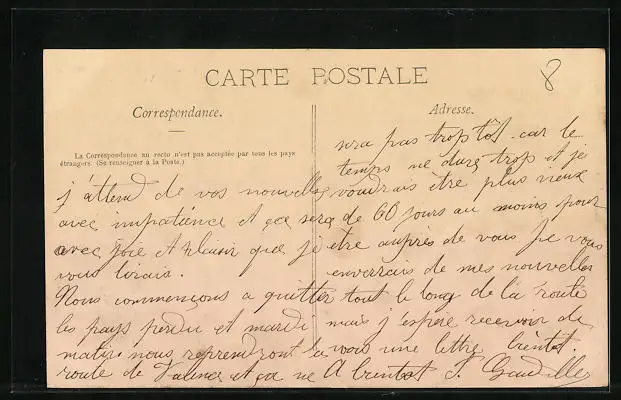 CARTE POSTALE
8
Correspondance.
La Correspondance au recto n'est pas acceptée par tous les pays
étrangers. (Se renseigner à la Poste.)
j'attend de vos nouvelles
avec impatience et ça sera
avec joie et plaisir que je
vous lirais.
Nous commençons a quitter
les pays perdu et mardi
matin nous reprendront la
route de Valence et ça ne
Adresse.
sera pas trop tôt. car le
temps me dure trop et je
voudrais etre plus vieux
de 60 jours au moins pour
etre aupres de vous Je vous
enverrais de mes nouvelles
tout le long de la route
mais j'espère recevoir de
vous une lettre bientot.
A bientot